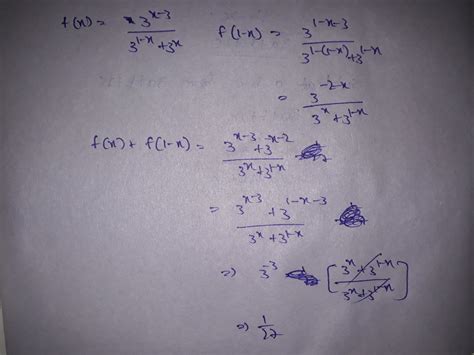 f(x) = 3^{x-3} / (3^{1-x} + 3^x)    f(1-x) = 3^{1-x-3} / (3^{1-(1-x)} + 3^{1-x})
= 3^{-2-x} / (3^x + 3^{1-x})
f(x) + f(1-x) = (3^{x-3} + 3^{-x-2}) / (3^x + 3^{1-x})
= (3^{x-3} + 3^{1-x-3}) / (3^x + 3^{1-x})
⇒ 3^{-3} [(3^x + 3^{1-x}) / (3^x + 3^{1-x})]
⇒ 1/27